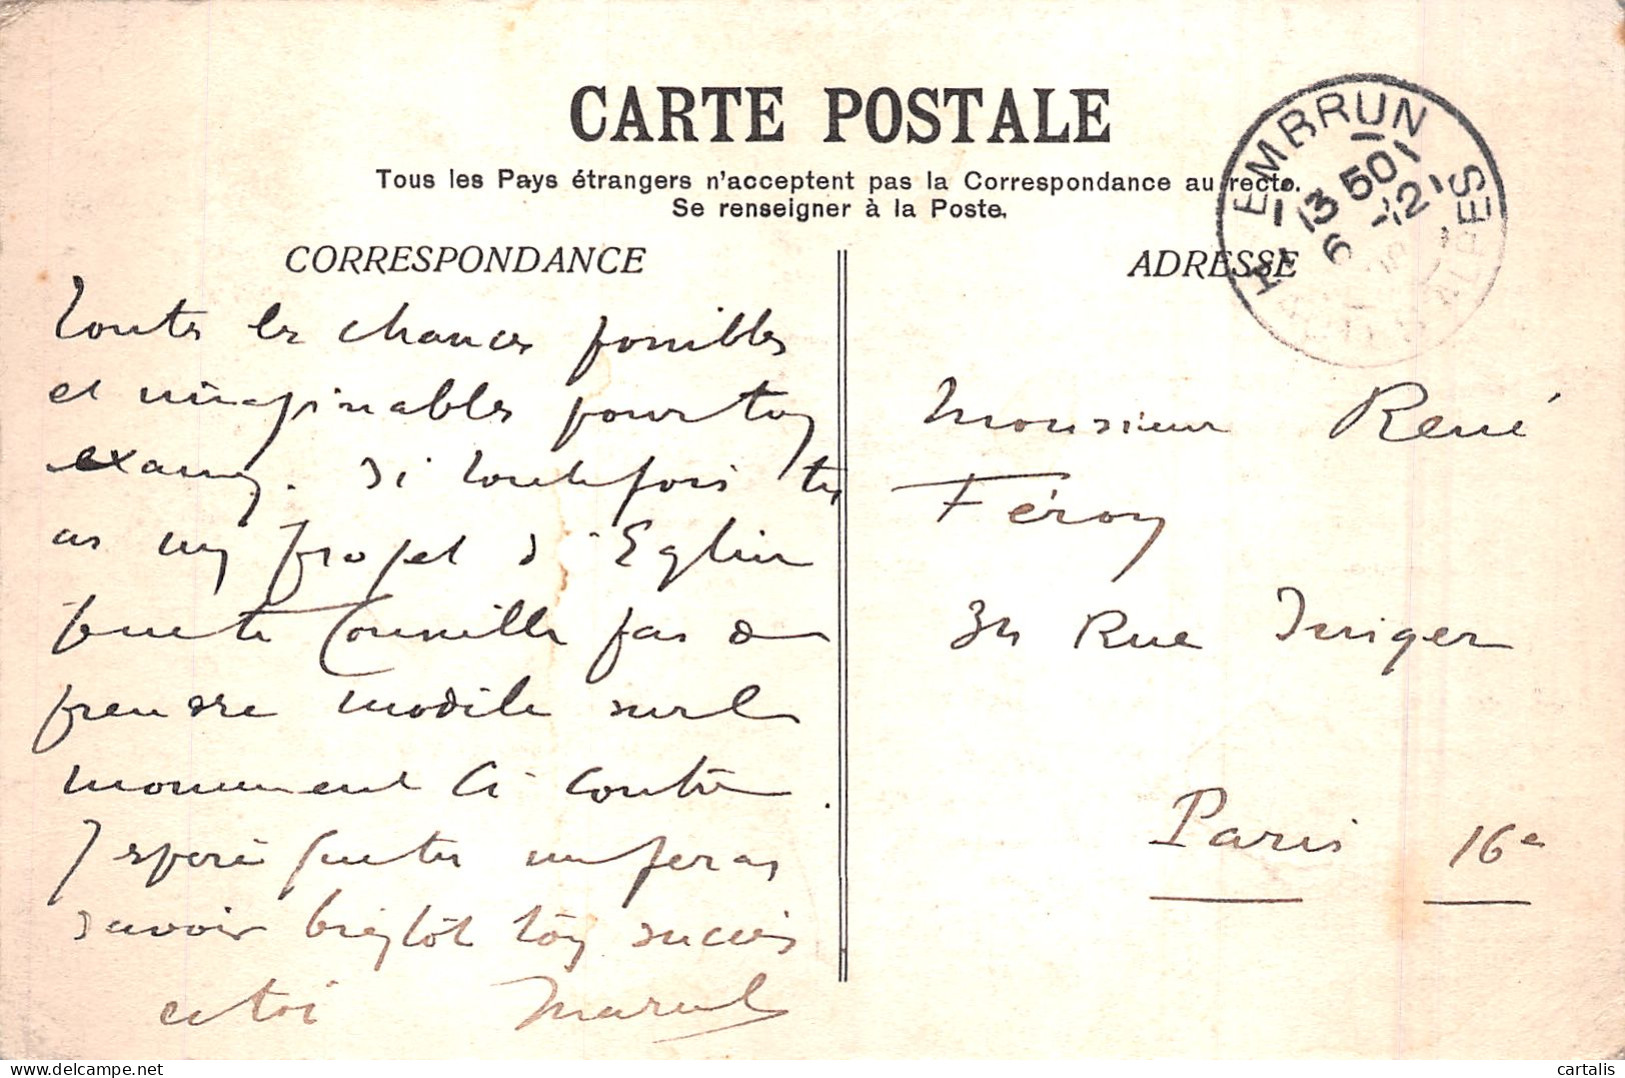 CARTE POSTALE
Tous les Pays étrangers n'acceptent pas la Correspondance au recto.
Se renseigner à la Poste.
CORRESPONDANCE
Toutes les chances possibles
et imaginables pour ton
examen. Si toutefois tu
as un projet d'Eglise
je te conseille pas de
prendre modèle sur le
monument ci contre.
J'espère que tu me feras
savoir bientôt ton succès
et toi Marcel
ADRESSE
EMBRUN
13 50
6 -12
HAUTES ALPES
Monsieur René
Féroy
34 Rue Singer
Paris 16e
cartalis